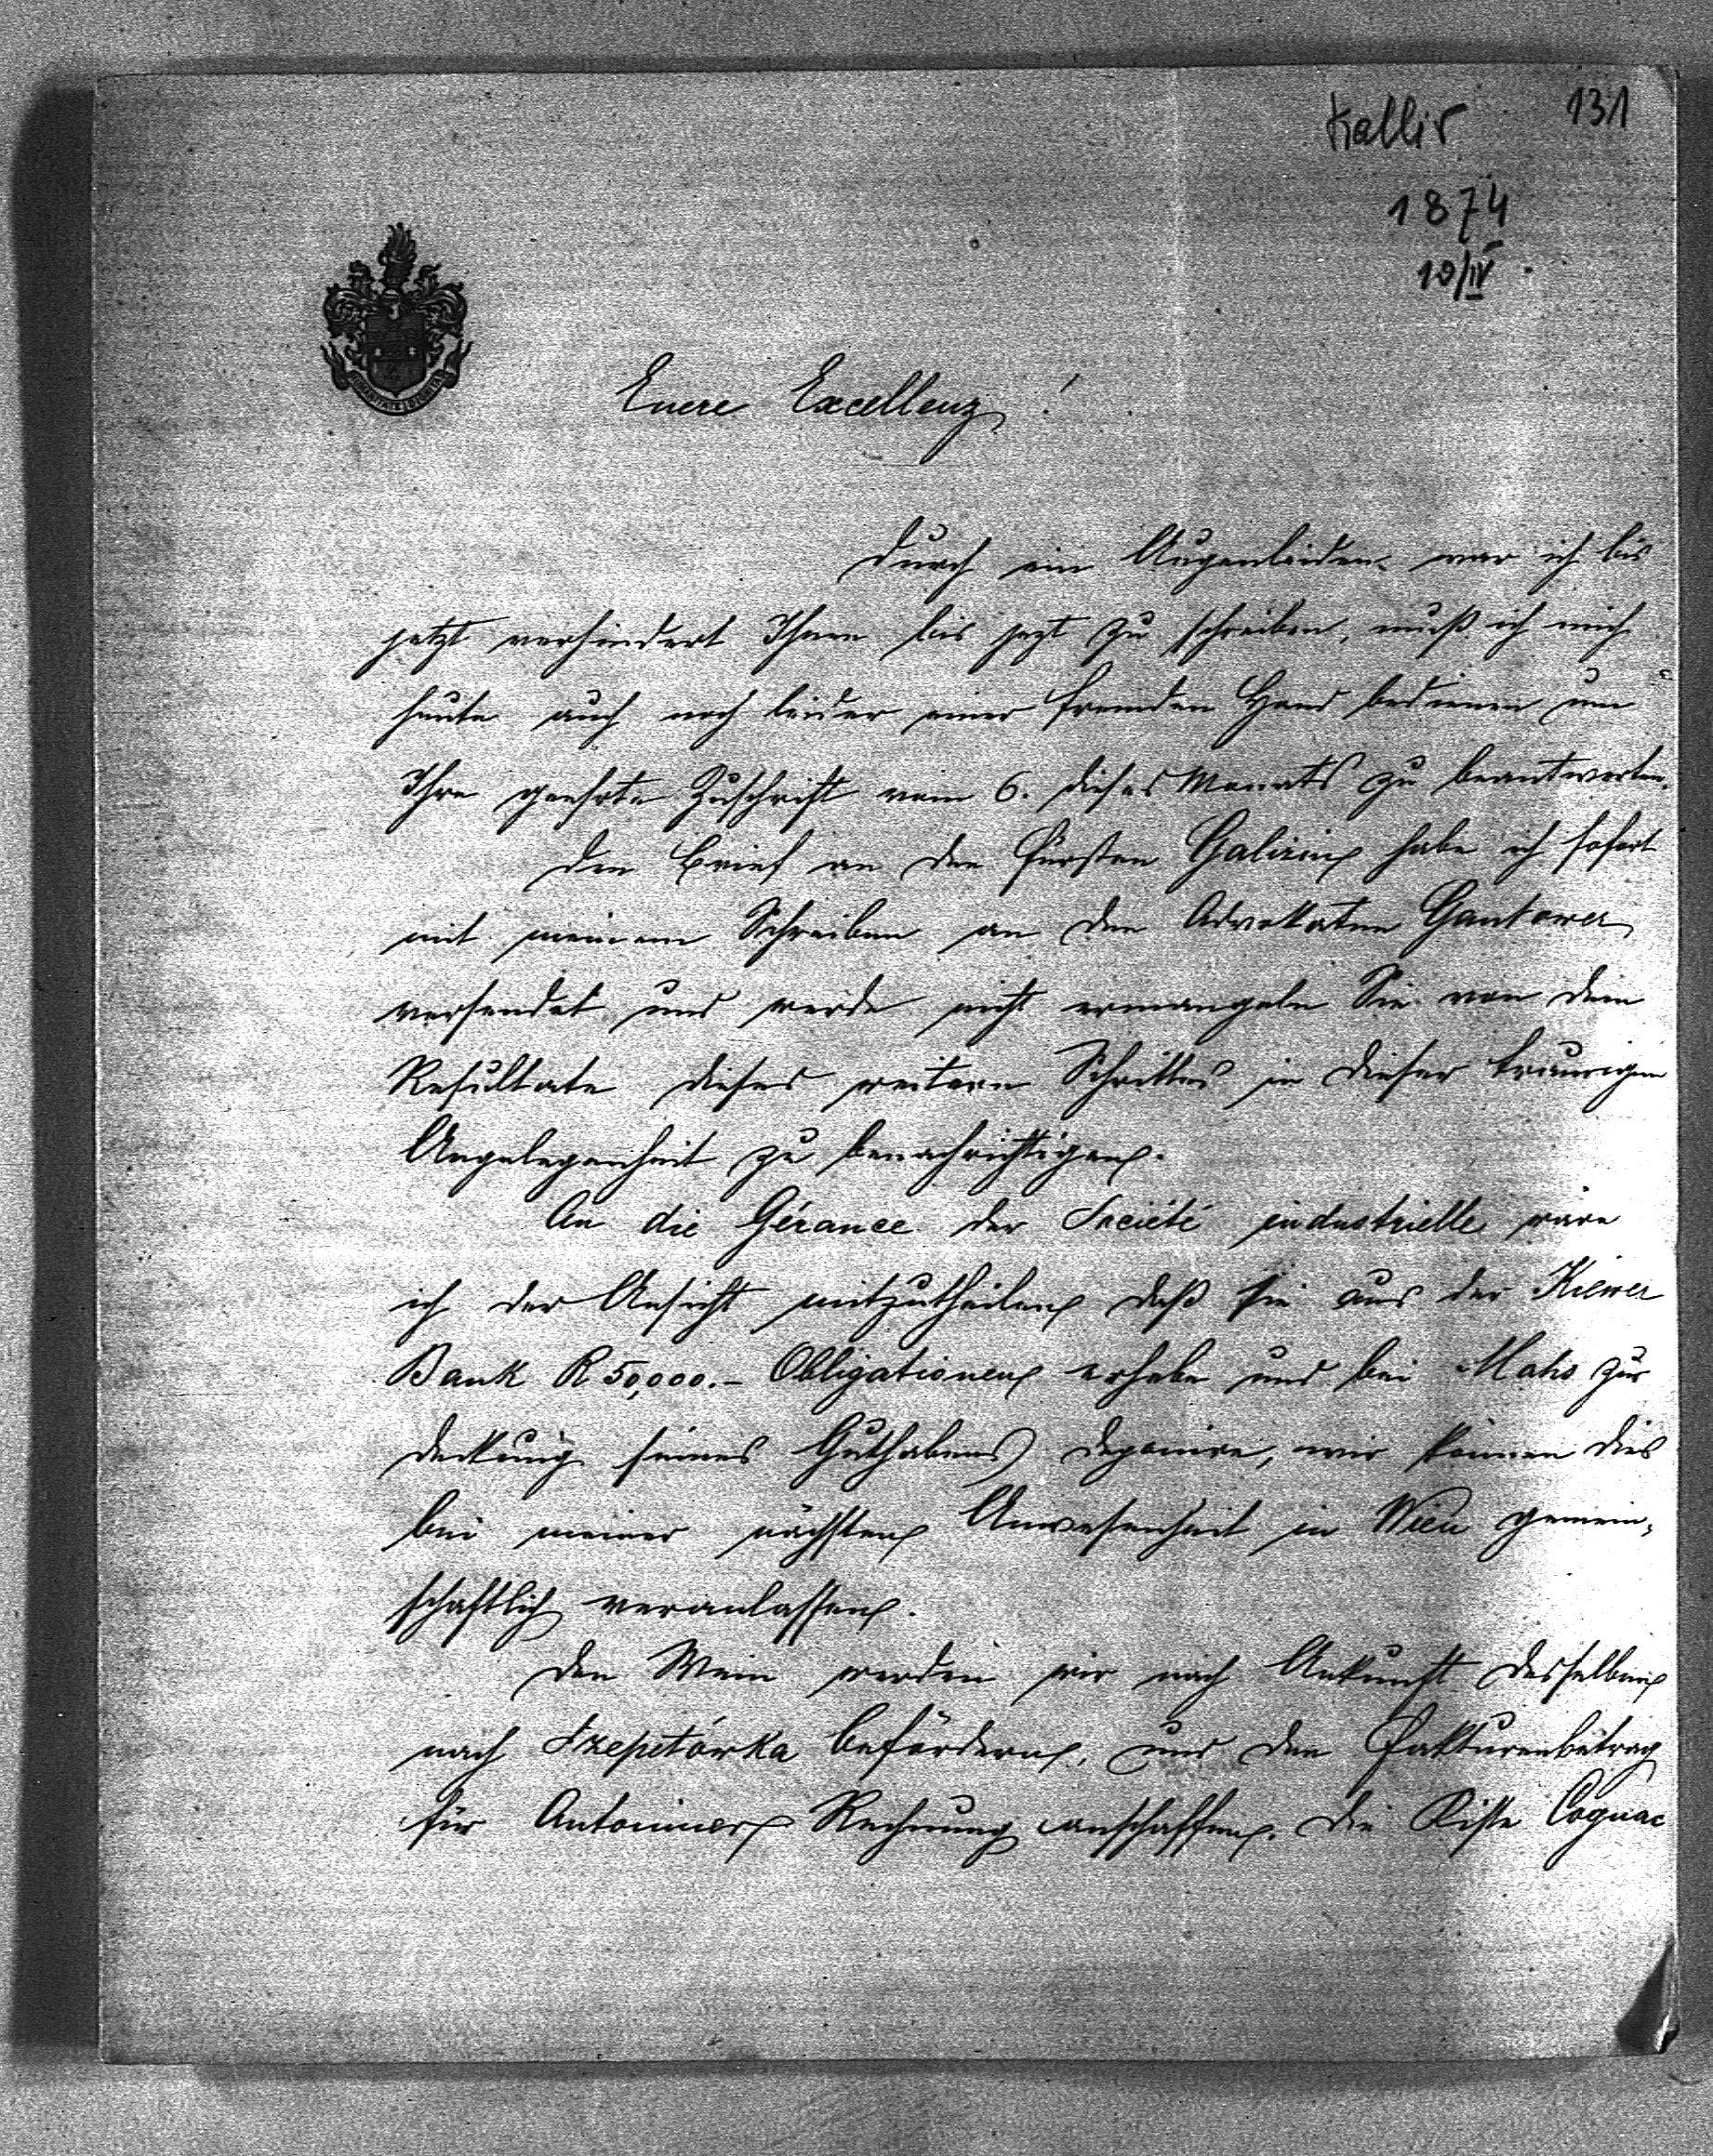 Kallir 131
1874
10/IV
Euere Excellenz!
Durch ein Augenleiden war ich bis
jetzt verhindert Ihnen bis jezt zu schreiben, muß ich mich
heute auch noch leider einer fremden Hand bedienen um
Ihre geehrte Zuschrift vom 6. dieses Monats zu beantworten.
Den Brief an den Fürsten Galizin habe ich sofort
mit meinem Schreiben an den Advokaten Gantower
versendet und werde nicht ermangeln Sie von dem
Resultate dieses weitern Schrittes in dieser traurigen
Angelegenheit zu benachrichtigen.
An die Gérance der Société industrielle wäre
ich der Ansicht mitzutheilen daß sie aus der Kiewer
Bank R 50,000.- Obligationen erhebe und bei Mahs zur
Deckung seines Guthabens deponire, wir können dies
bei meiner nächsten Anwesenheit in Wien gemein-
schaftlich veranlassen.
Den Wein werden wir nach Ankunft desselben
nach Szepetówka befördern, und den Fakturenbetrag
für Antoniner Rechnung anschaffen. Die Kiste Cognac